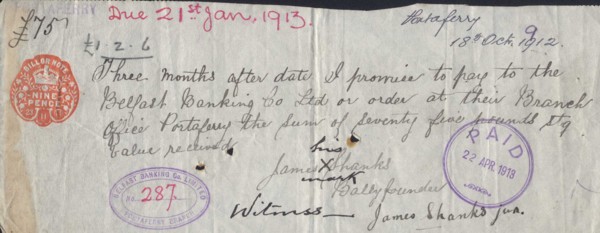 PORTAFERRY
£75
Due 21st Jan, 1913.
Portaferry
18th Oct. 1912.
£1.2.6
BILL OR NOTE
NINE
PENCE
Three months after date I promise to pay to the
Belfast Banking Co Ltd or order at their Branch
office Portaferry the sum of seventy five pounds stg
Value received
his
James X Shanks
mark
Ballyfounder
Witness James Shanks Jun.
BELFAST BANKING Co. LIMITED
No. 287.
PORTAFERRY BRANCH
PAID
22 APR 1913